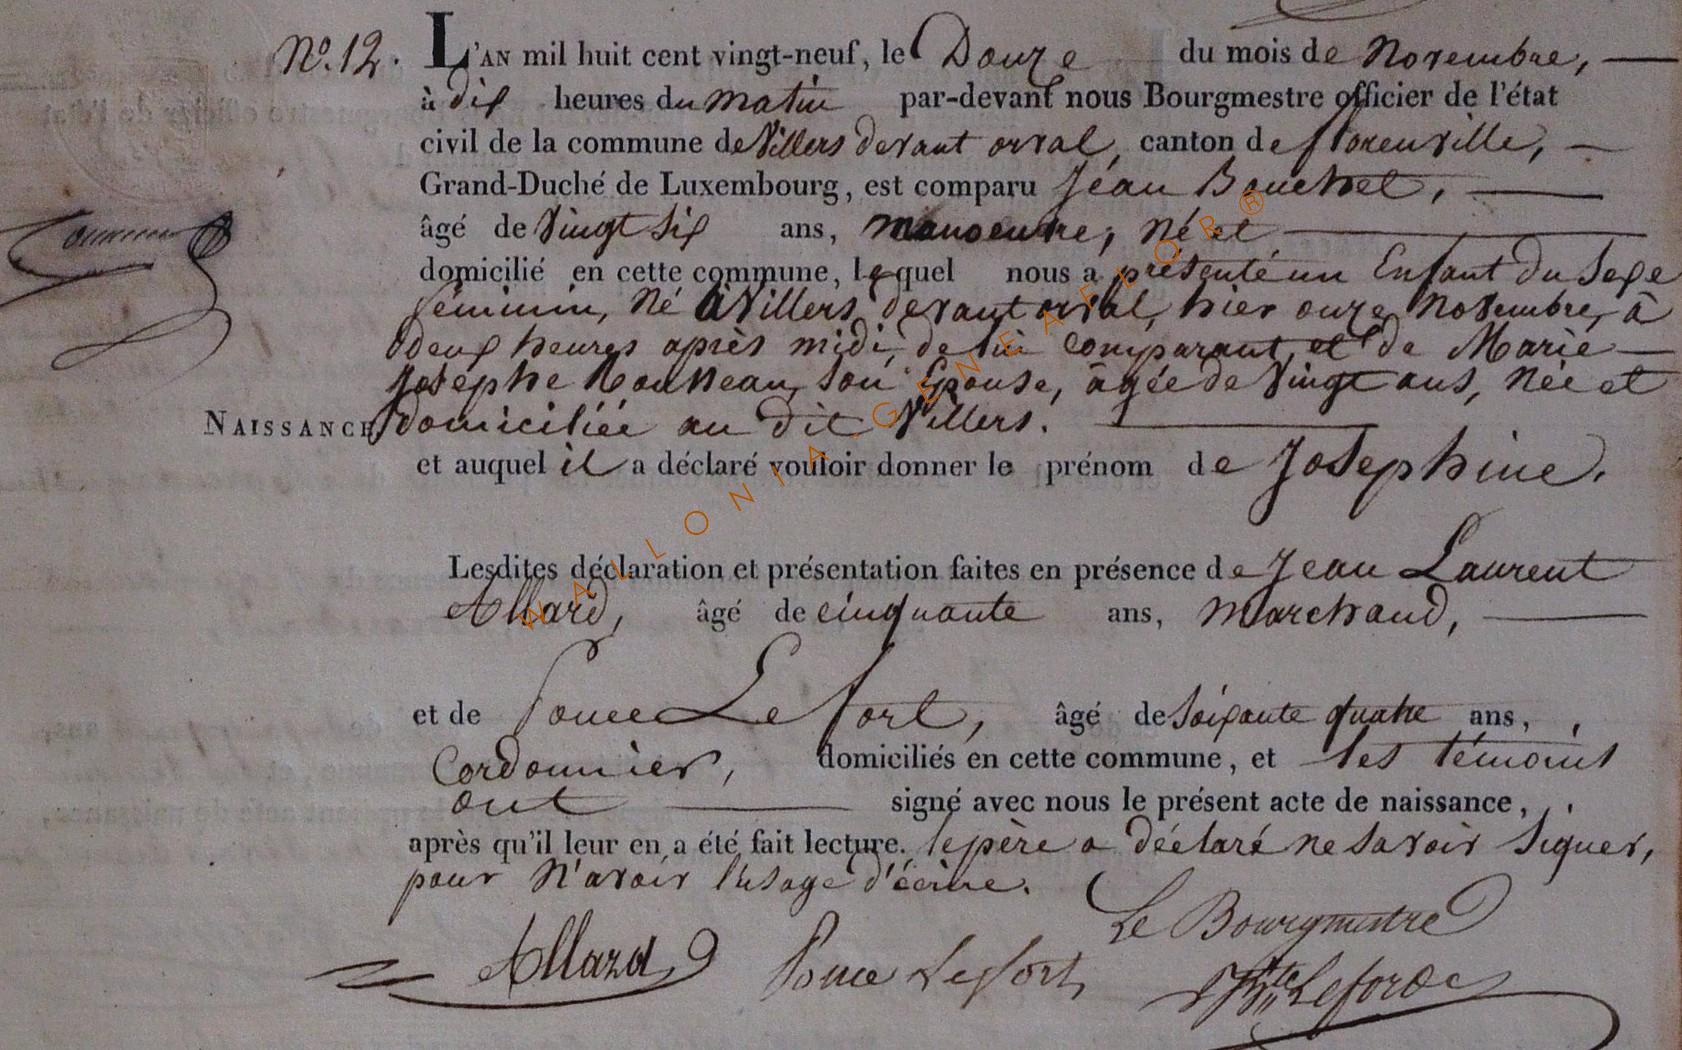 No. 12. L'AN mil huit cent vingt-neuf, le Douze du mois de Novembre,
à dix heures du matin par-devant nous Bourgmestre officier de l'état
civil de la commune de Villers devant orval, canton de florenville,
Grand-Duché de Luxembourg, est comparu Jean Bouchet,
âgé de vingt six ans, manoeuvre, né et
domicilié en cette commune, lequel nous a présenté un Enfant du Sexe
féminin, né à Villers devant orval, hier onze Novembre, à
deux heures après midi, de lui comparant, et de Marie
Josephe son Epouse, âgée de vingt ans, née et
NAISSANCE domiciliée au dit Villers.
et auquel il a déclaré vouloir donner le prénom de Josephine.
Lesdites déclaration et présentation faites en présence de Jean Laurent
Allard, âgé de cinquante ans, Marchand,
et de Ponce Lefort, âgé de Soixante quatre ans,
Cordonnier, domiciliés en cette commune, et les témoins
ont signé avec nous le présent acte de naissance,
après qu'il leur en a été fait lecture. le père a déclaré ne savoir signer,
pour n'avoir l'usage d'écrire.
Le Bourgmestre
Allard Ponce Lefort
WALLONIA GENEAFLOR®